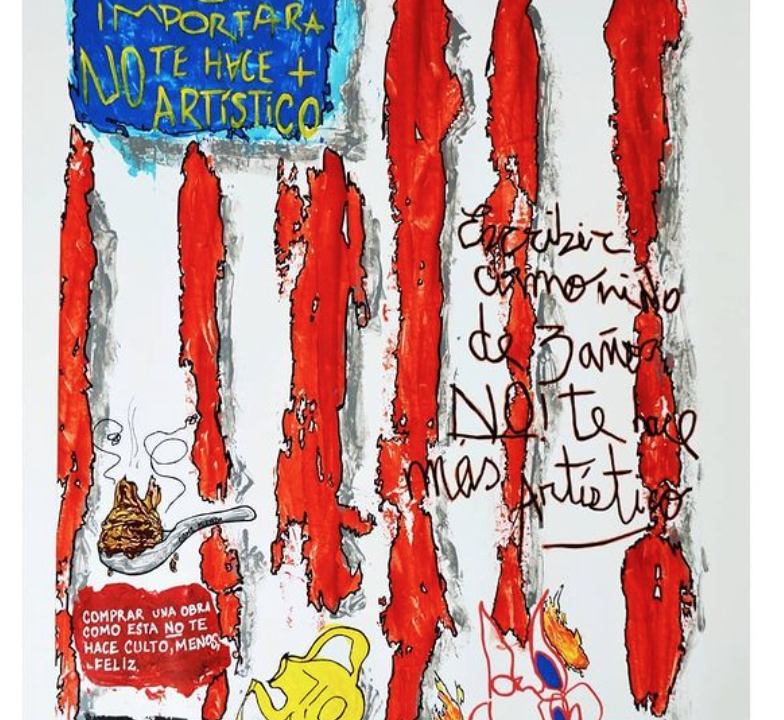 IMPORTARA
NO TE HACE +
ARTÍSTICO
Escribir
como niño
de 3 años
NO! te hace
más
artístico
COMPRAR UNA OBRA
COMO ESTA NO TE
HACE CULTO, MENOS,
FELIZ.